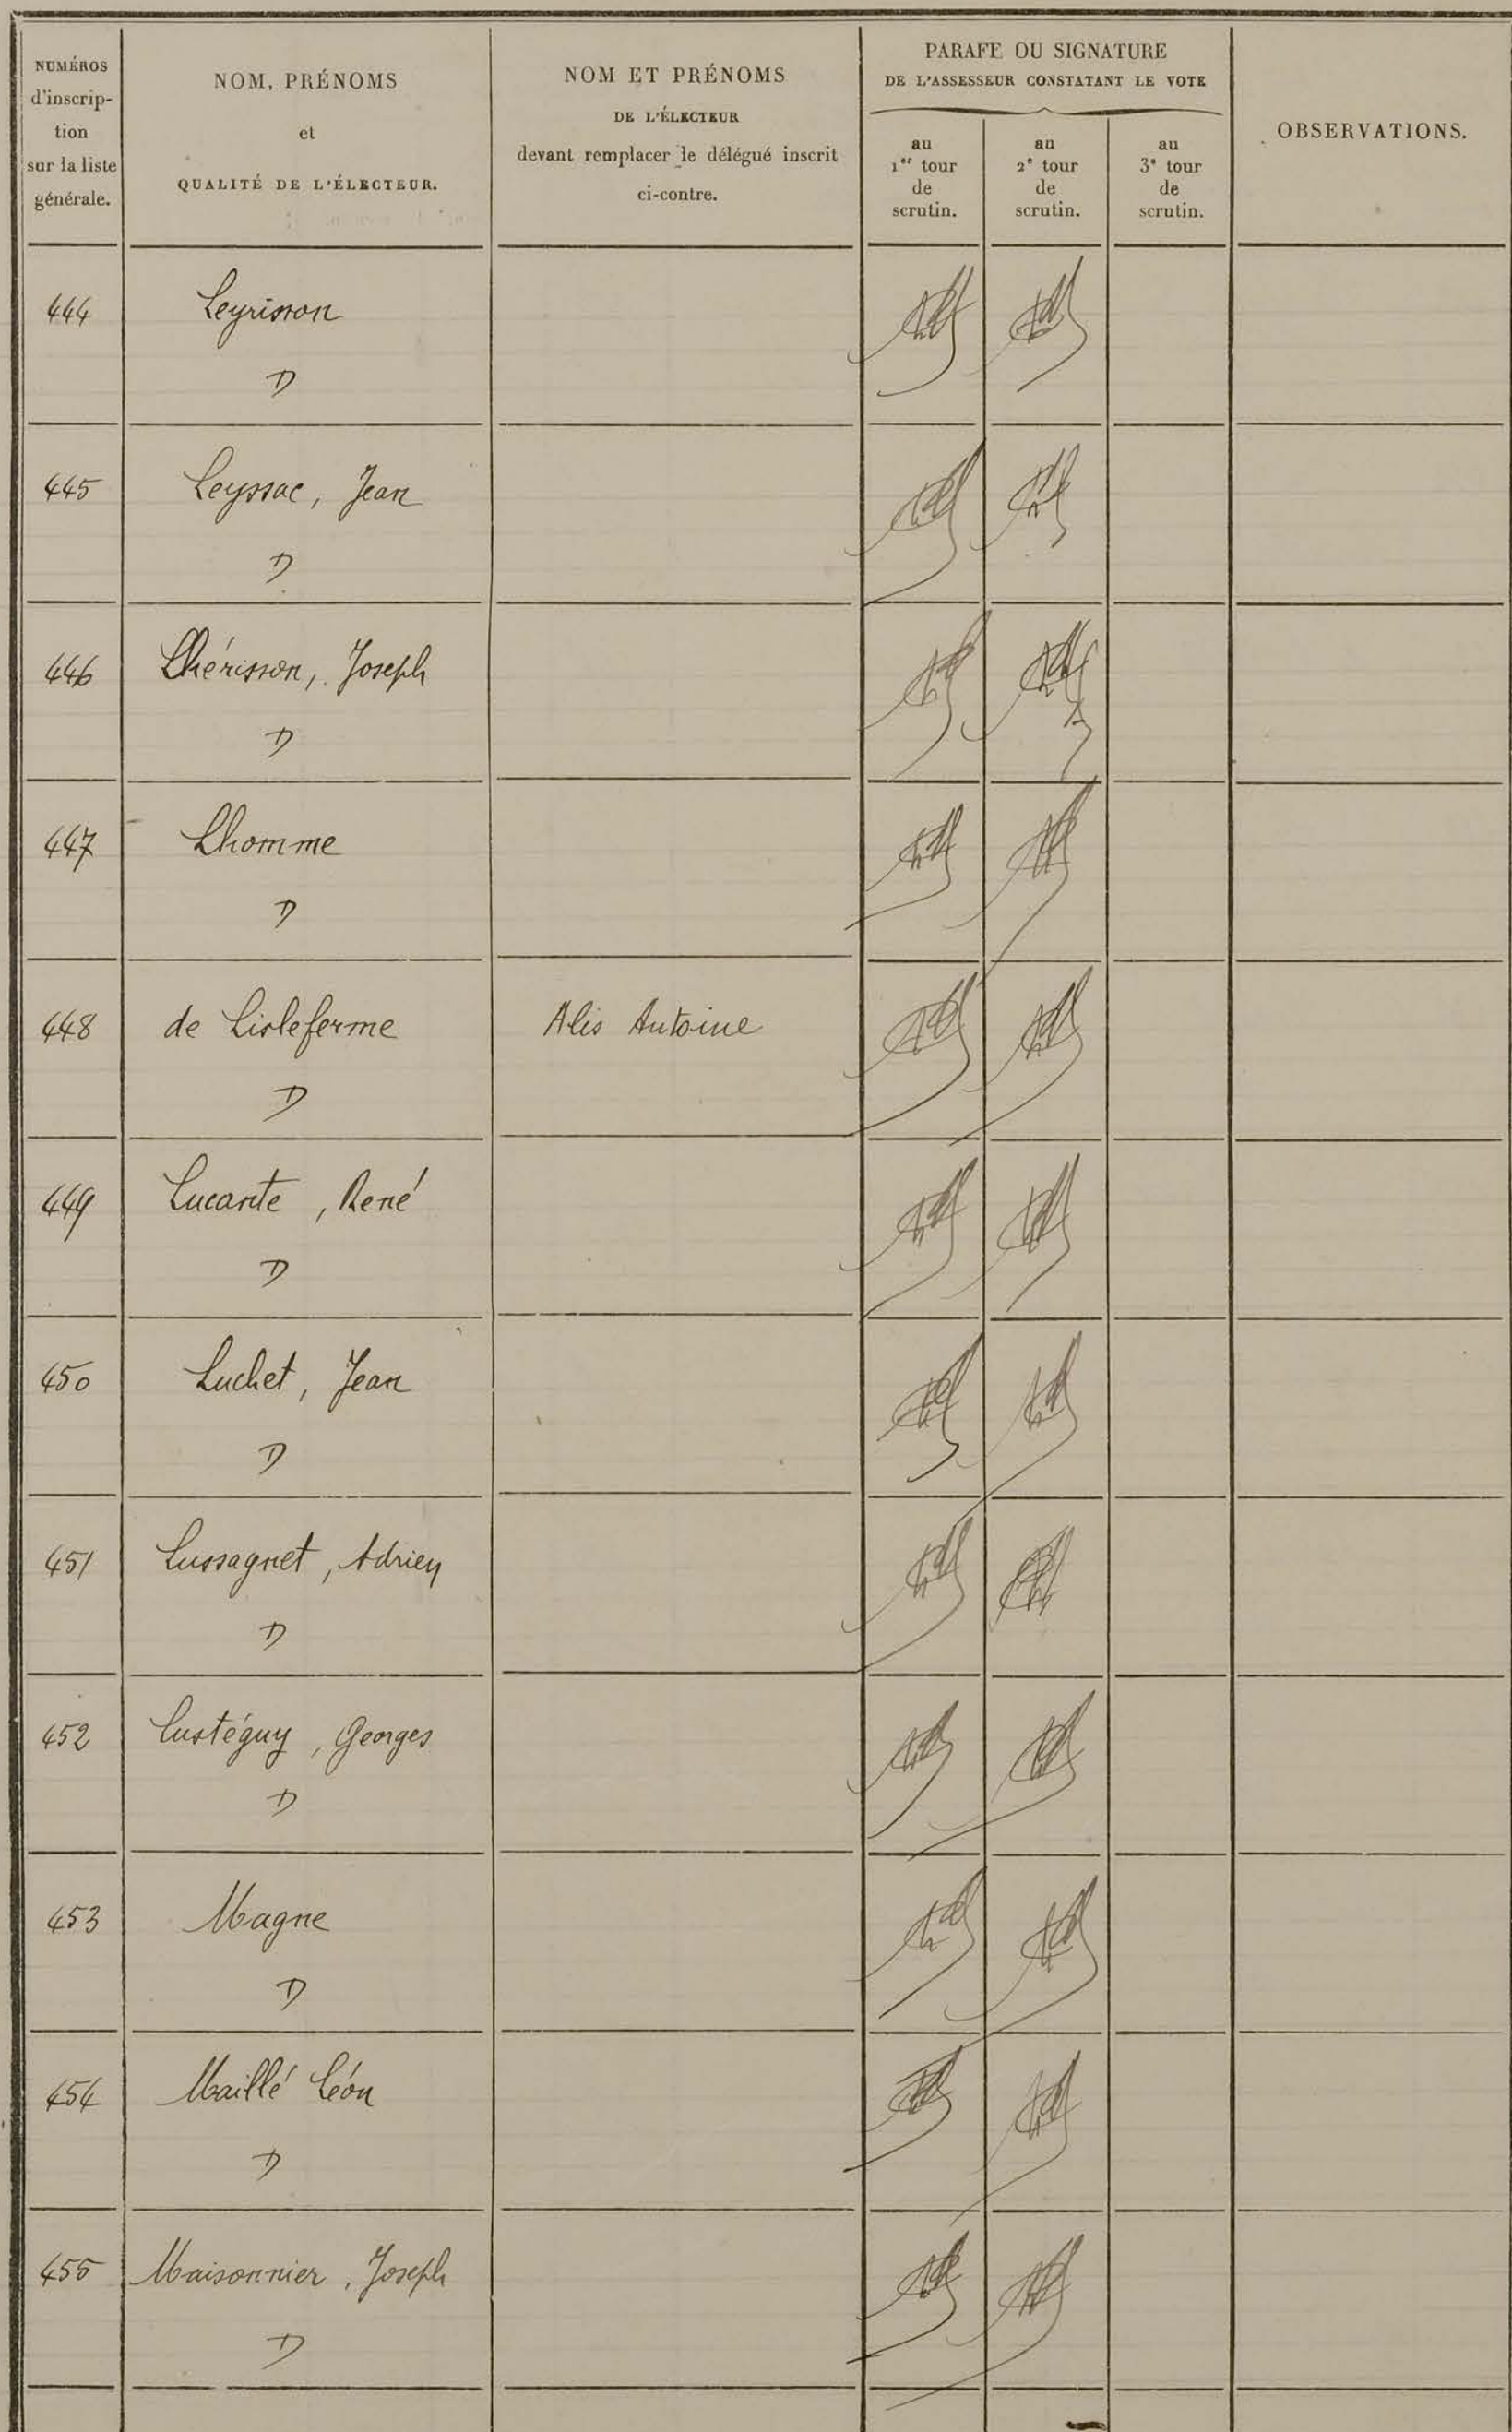 NUMÉROS
d'inscrip-
tion
sur la liste
générale.
NOM, PRÉNOMS
et
QUALITÉ DE L'ÉLECTEUR.
NOM ET PRÉNOMS
DE L'ÉLECTEUR
devant remplacer le délégué inscrit
ci-contre.
PARAFE OU SIGNATURE
DE L'ASSESSEUR CONSTATANT LE VOTE
au
1er tour
de
scrutin.
au
2e tour
de
scrutin.
au
3e tour
de
scrutin.
OBSERVATIONS.
444 Leyrisson
D
445 Leyssac, Jean
D
446 Lhérisson, Joseph
D
447 Lhomme
D
448 de Lisleferme Alis Antoine
D
449 Lucante, René
D
450 Luchet, Jean
D
451 Lussagnet, Adrien
D
452 Lustéguy, Georges
D
453 Magne
D
454 Maillé Léon
D
455 Maisonnier, Joseph
D